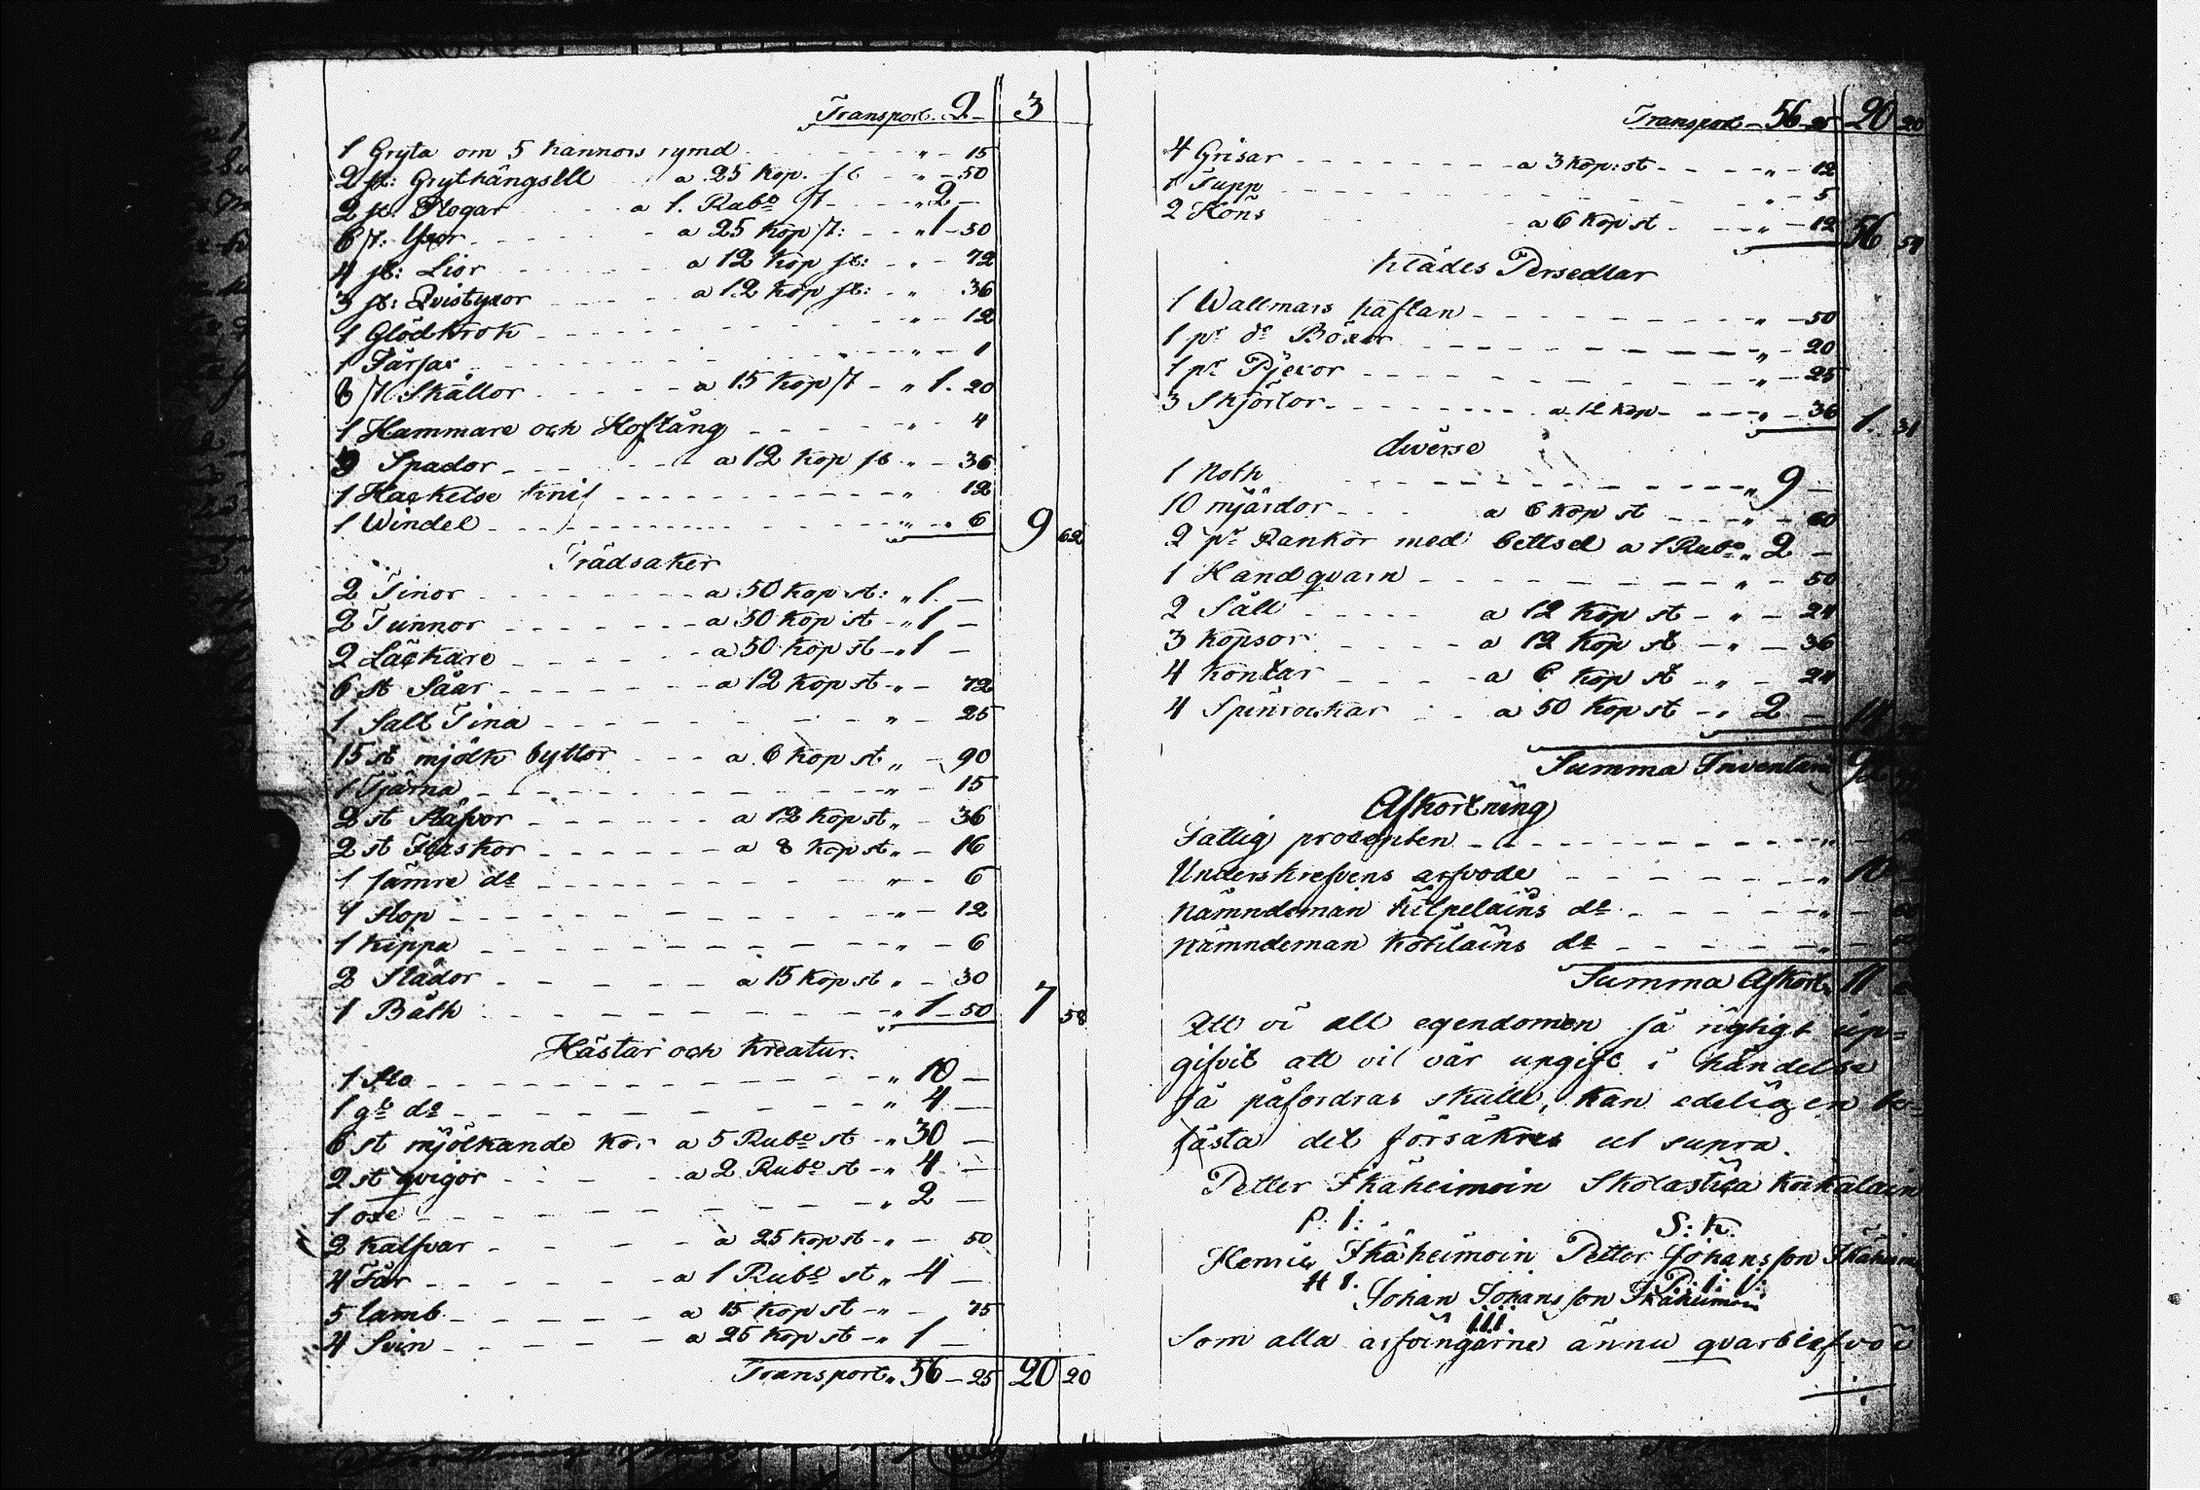 Transport. 2 — 3
1 Gryta om 5 kannors rymd " — 15
2 st: Grythängsлe a 25 kop. st " — 50
2 st: Plogar a 1. Rub. st " 2 —
6 st: Yxor a 25 kop st: " 1 — 50
4 st: Lior a 12 kop st: " — 72
3 st: Qvistyxor a 12 kop st: " 36
1 Glödkrok " — 12
1 " — 1
8 st Skällor a 15 kop st " 1. 20
1 Hammare och Hoftång " 4
3 Spador a 12 kop st " — 36
1 Hackelse knif " 12
1 Windel " — 6 9 62
Trädsaker
2 Tinor a 50 kop st: " 1. —
2 Tunnor a 50 kop st " 1 —
2 a 50 kop st " 1 —
6 st Såar a 12 kop st " — 72
1 Salt Tina " — 25
15 st mjölk byttor a 6 kop st " — 90
1 Tjärna " — 15
2 st a 12 kop st " — 36
2 st Flaskor a 8 kop st " — 16
1 sämre do " — 6
1 Stop " — 12
1 Kippa " — 6
2 Slädor a 15 kop st " — 30
1 Båth " 1 — 50 7 58
Hästar och Kreatur.
1 Sto " 10 —
1 do " 4 —
6 st mjölkande kor a 5 Rub. st " 30 —
2 st qvigor a 2 Rub. st " 4 —
1 oxe " 2 —
2 Kalfvar a 25 kop st " — 50
4 Får a 1 Rub. st " 4 —
5 lamb a 15 kop st " — 75
4 Svin a 25 kop st " 1 —
Transport " 56 — 25 20 20
Transport — 56 25 20 20
4 Grisar a 3 kop: st " — 12
1 Tupp " — 5
2 Höns a 6 kop st " — 12 56 54
Klädes Persedlar
1 Wallmars kaftan " — 50
1 pr do Böxor " — 20
1 pr Pjexor " — 25
3 Skjortor a 12 kop " — 36 1. 31
diverse
1 Noth " 9 —
10 mjärdor a 6 kop st " — 60
2 pr Rankor med bettsel a 1 Rub. " 2 —
1 Handqvarn " — 50
2 Såll a 12 kop st " — 24
3 kopsor a 12 kop st " — 36
4 kontar a 6 kop st " — 24
4 Spinrockar a 50 kop st " 2 —
Summa Inventarii
Afkortning
Fattig procenten "
Underskrefvens arfvode " 10
Nämndeman Kilpeläins do "
Nämndeman Kotilains do "
Summa Afkort. 11
Att vi all egendomen så rigtigt up=
gifvit att vi vår upgift i händelse
så påfordras skulle, kan edeligen be=
fästa det försäkras ut supra.
Petter Ikäheimoin Skolastica
P: I: S: K.
Henric Ikäheimoin Petter Johansson
H I. P: I: I:
Johan Johansson Ikäheimoin
I I I
Som alla arfvingarne ännu